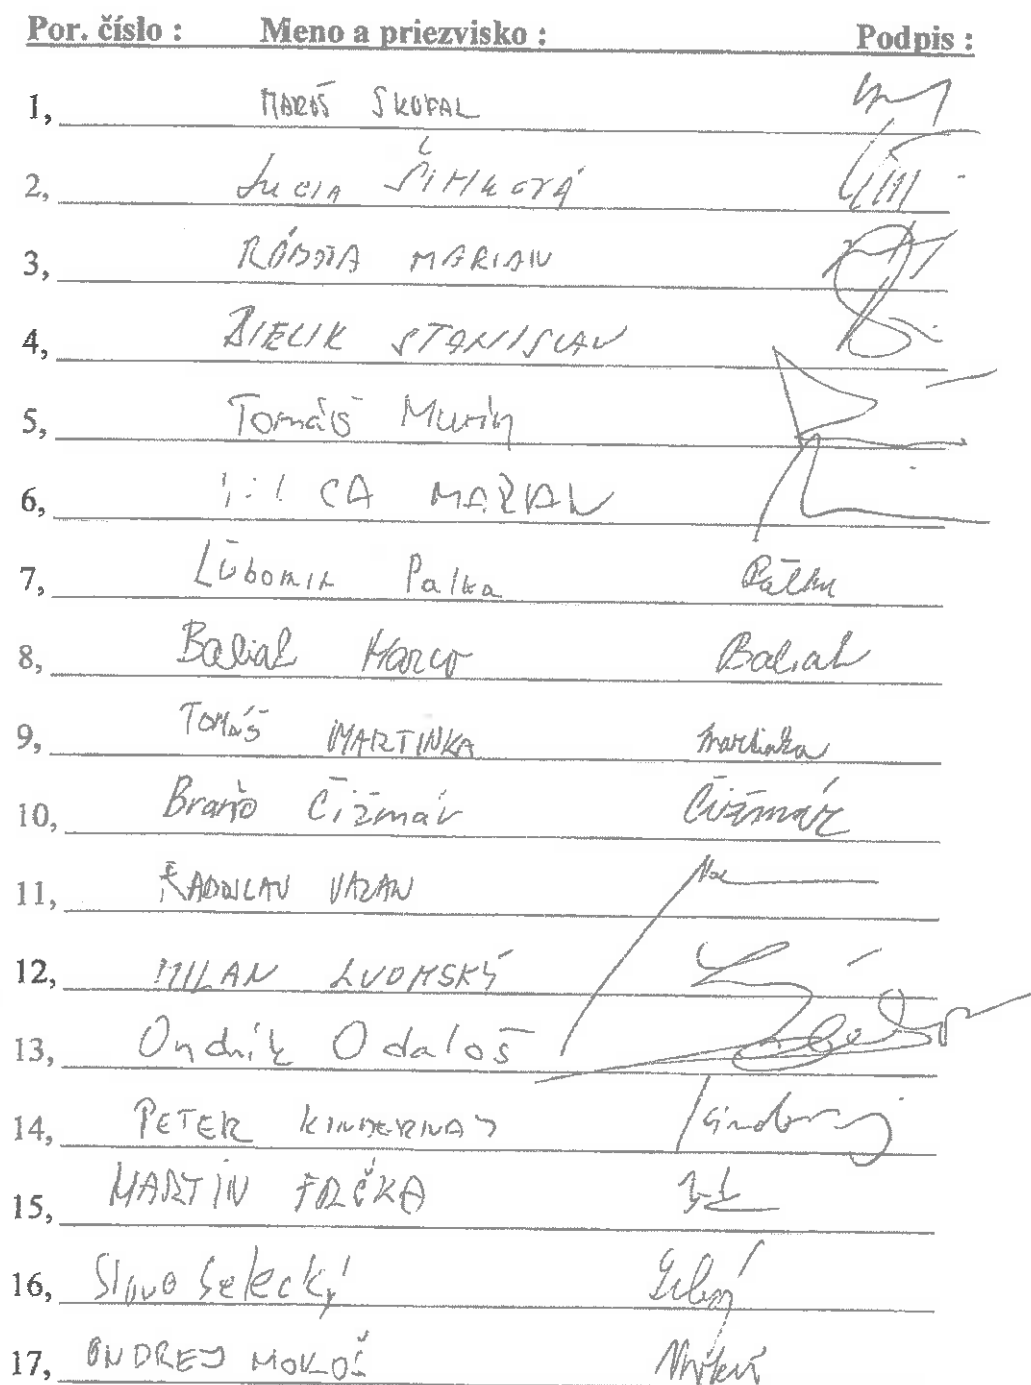 Por. číslo : Meno a priezvisko : Podpis :
1, MAROŠ SKUPAL
2, Lucia ŠIMKOVÁ
3, MARIAN
4, BIELIK STANISLAV
5, Tomáš Murín
6, MARIAN
7, Ľubomír Palka Palka
8, Baliak Marco Baliak
9, TOMÁŠ MARTINKA Martinka
10, Braňo Čižmár Čižmár
11, RADOSLAV VAZAN
12, MILAN ĽVOMSKÝ
13, Ondrik Odaloš
14, PETER KINDERNAY Kindernay
15, MARTIN FRČKA
16, Slavo Selecký
17, ONDREJ MOKOŠ Mokoš